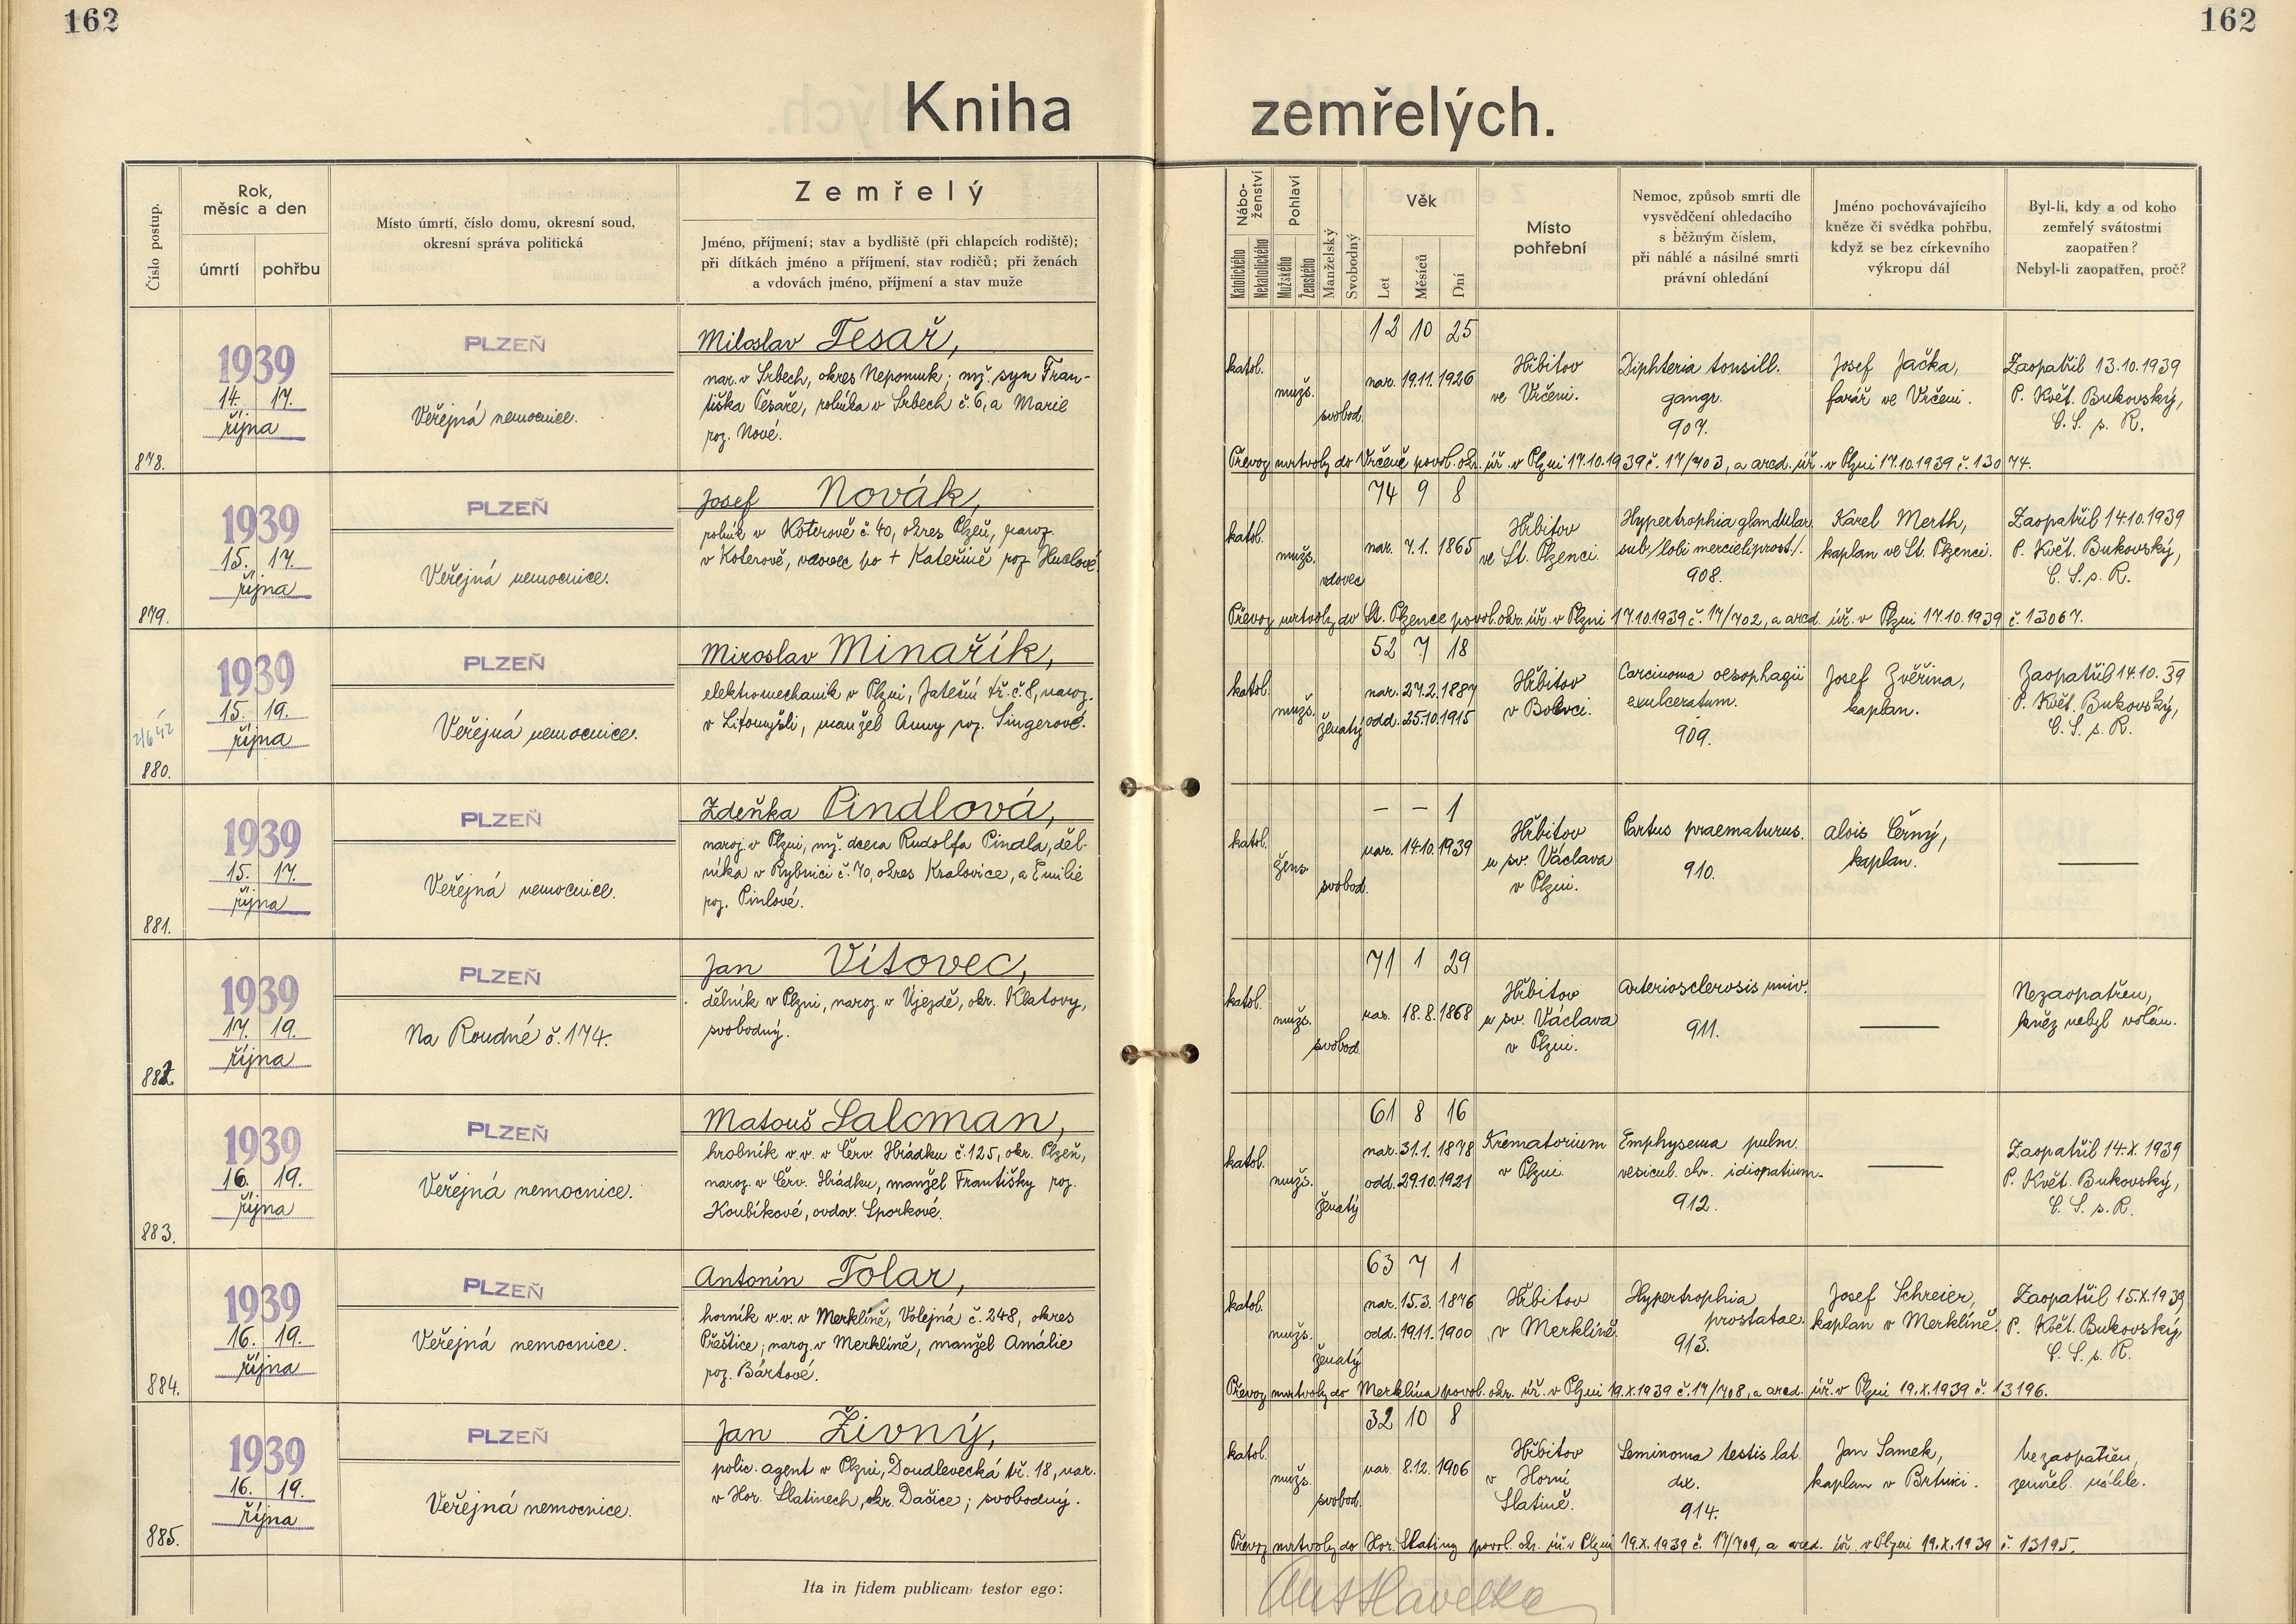 162
162
Kniha zemřelých.
Číslo postup.
Rok,
měsíc a den
úmrtí
pohřbu
Místo úmrtí, číslo domu, okresní soud,
okresní správa politická
Zemřelý
Jméno, příjmení; stav a bydliště (při chlapcích rodiště);
při dítkách jméno a příjmení, stav rodičů; při ženách
a vdovách jméno, příjmení a stav muže
Nábo-
ženství
Katolického
Nekatolického
Pohlaví
Mužského
Ženského
Manželský
Svobodný
Věk
Let
Měsíců
Dní
Místo
pohřební
Nemoc, způsob smrti dle
vysvědčení ohledacího
s běžným číslem,
při náhlé a násilné smrti
právní ohledání
Jméno pochovávajícího
kněze či svědka pohřbu,
když se bez církevního
výkropu dál
Byl-li, kdy a od koho
zemřelý svátostmi
zaopatřen?
Nebyl-li zaopatřen, proč?
878.
1939
14. 17.
října
PLZEŇ
Veřejná nemocnice.
Miloslav Tesař,
nar. v Srbech, okres Nepomuk; mž. syn Fran-
tiška Tesaře, rolníka v Srbech č. 6, a Marie
roz. Nové.
katol.
mužs.
svobod.
12 10 25
nar. 19.11.1926
Hřbitov
ve Vrčeni.
Diphteria tonsill.
gangr.
907.
Josef Jačka,
farář ve Vrčeni.
Zaopatřil 13.10.1939
P. Květ. Bukovský,
C. S. s. R.
Převoz mrtvoly do Vrčeně povol. okr. úř. v Plzni 17.10.1939 č. 17/703, a arcd. úř. v Plzni 17.10.1939 č. 13074.
879.
1939
15. 17.
října
PLZEŇ
Veřejná nemocnice.
Josef Novák,
rolník v Koterově č. 40, okres Plzeň, naroz.
v Koterově, vdovec po + Kateřině roz.
katol.
mužs.
vdovec
74 9 8
nar. 7.1.1865
Hřbitov
ve St. Plzenci.
Hypertrophia glandular.
908.
Karel Merth,
kaplan ve St. Plzenci.
Zaopatřil 14.10.1939
P. Květ. Bukovský,
C. S. s. R.
Převoz mrtvoly do St. Plzence povol. okr. úř. v Plzni 17.10.1939 č. 17/702, a arcd. úř. v Plzni 17.10.1939 č. 13067.
880.
1939
15. 19.
října
PLZEŇ
Veřejná nemocnice.
Miroslav Minařík,
elektromechanik v Plzni, Jateční tř. č. 8, naroz.
v Litomyšli, manžel Anny roz. Singerové.
katol.
mužs.
ženatý
52 7 18
nar. 27.2.1887
odd. 25.10.1915
Hřbitov
v Bolevci.
Carcinoma oesophagii
exulceratum.
909.
Josef Zvěřina,
kaplan.
Zaopatřil 14.10.39
P. Květ. Bukovský,
C. S. s. R.
881.
1939
15. 17.
října
PLZEŇ
Veřejná nemocnice.
Zdeňka Pindlová,
naroz. v Plzni, mž. dcera Rudolfa Pindla, děl-
níka v Rybnici č. 70, okres Kralovice, a Emilie
roz. Pinlové.
katol.
žens.
svobod.
– – 1
nar. 14.10.1939
Hřbitov
u sv. Václava
v Plzni.
Partus praematurus.
910.
Alois Černý,
kaplan.
—
882.
1939
17. 19.
října
PLZEŇ
Na Roudné č. 174.
Jan Vítovec,
dělník v Plzni, naroz. v Újezdě, okr. Klatovy,
svobodný.
katol.
mužs.
svobod.
71 1 29
nar. 18.8.1868
Hřbitov
u sv. Václava
v Plzni.
Arteriosclerosis univ.
911.
—
Nezaopatřen,
kněz nebyl volán.
883.
1939
16. 19.
října
PLZEŇ
Veřejná nemocnice.
Matouš Salcman,
hrobník v.v. v Červ. Hrádku č. 125, okr. Plzeň,
naroz. v Červ. Hrádku, manžel Františky roz.
Koubíkové, ovdov. Sporkové.
katol.
mužs.
ženatý
61 8 16
nar. 31.1.1878
odd. 29.10.1921
Krematorium
v Plzni.
Emphysema pulm.
vesicul. chr. idiopatium.
912.
—
Zaopatřil 14.X.1939
P. Květ. Bukovský,
C. S. s. R.
884.
1939
16. 19.
října
PLZEŇ
Veřejná nemocnice.
Antonín Tolar,
horník v.v. v Merklíně, Volejná č. 248, okres
Přeštice; naroz. v Merklíně, manžel Amálie
roz. Bártové.
katol.
mužs.
ženatý
63 7 1
nar. 15.3.1876
odd. 19.11.1900
Hřbitov
v Merklíně.
Hypertrophia
prostatae.
913.
Josef Schreier,
kaplan v Merklíně.
Zaopatřil 15.X.1939
P. Květ. Bukovský,
C. S. s. R.
Převoz mrtvoly do Merklína povol. okr. úř. v Plzni 19.X.1939 č. 17/708, a arcd. úř. v Plzni 19.X.1939 č. 13196.
885.
1939
16. 19.
října
PLZEŇ
Veřejná nemocnice.
Jan Živný,
polic. agent v Plzni, Doudlevecká tř. 18, nar.
v Hor. Slatinech, okr. Dačice; svobodný.
katol.
mužs.
svobod.
32 10 8
nar. 8.12.1906
Hřbitov
v Horní
Slatině.
Seminoma testis lat.
dx.
914.
Jan Samek,
kaplan v Brtnici.
Nezaopatřen,
zemřel náhle.
Převoz mrtvoly do Hor. Slatiny povol. okr. úř. v Plzni 19.X.1939 č. 17/709, a arcd. úř. v Plzni 19.X.1939 č. 13195.
Ita in fidem publicam testor ego:
Ant Havelka